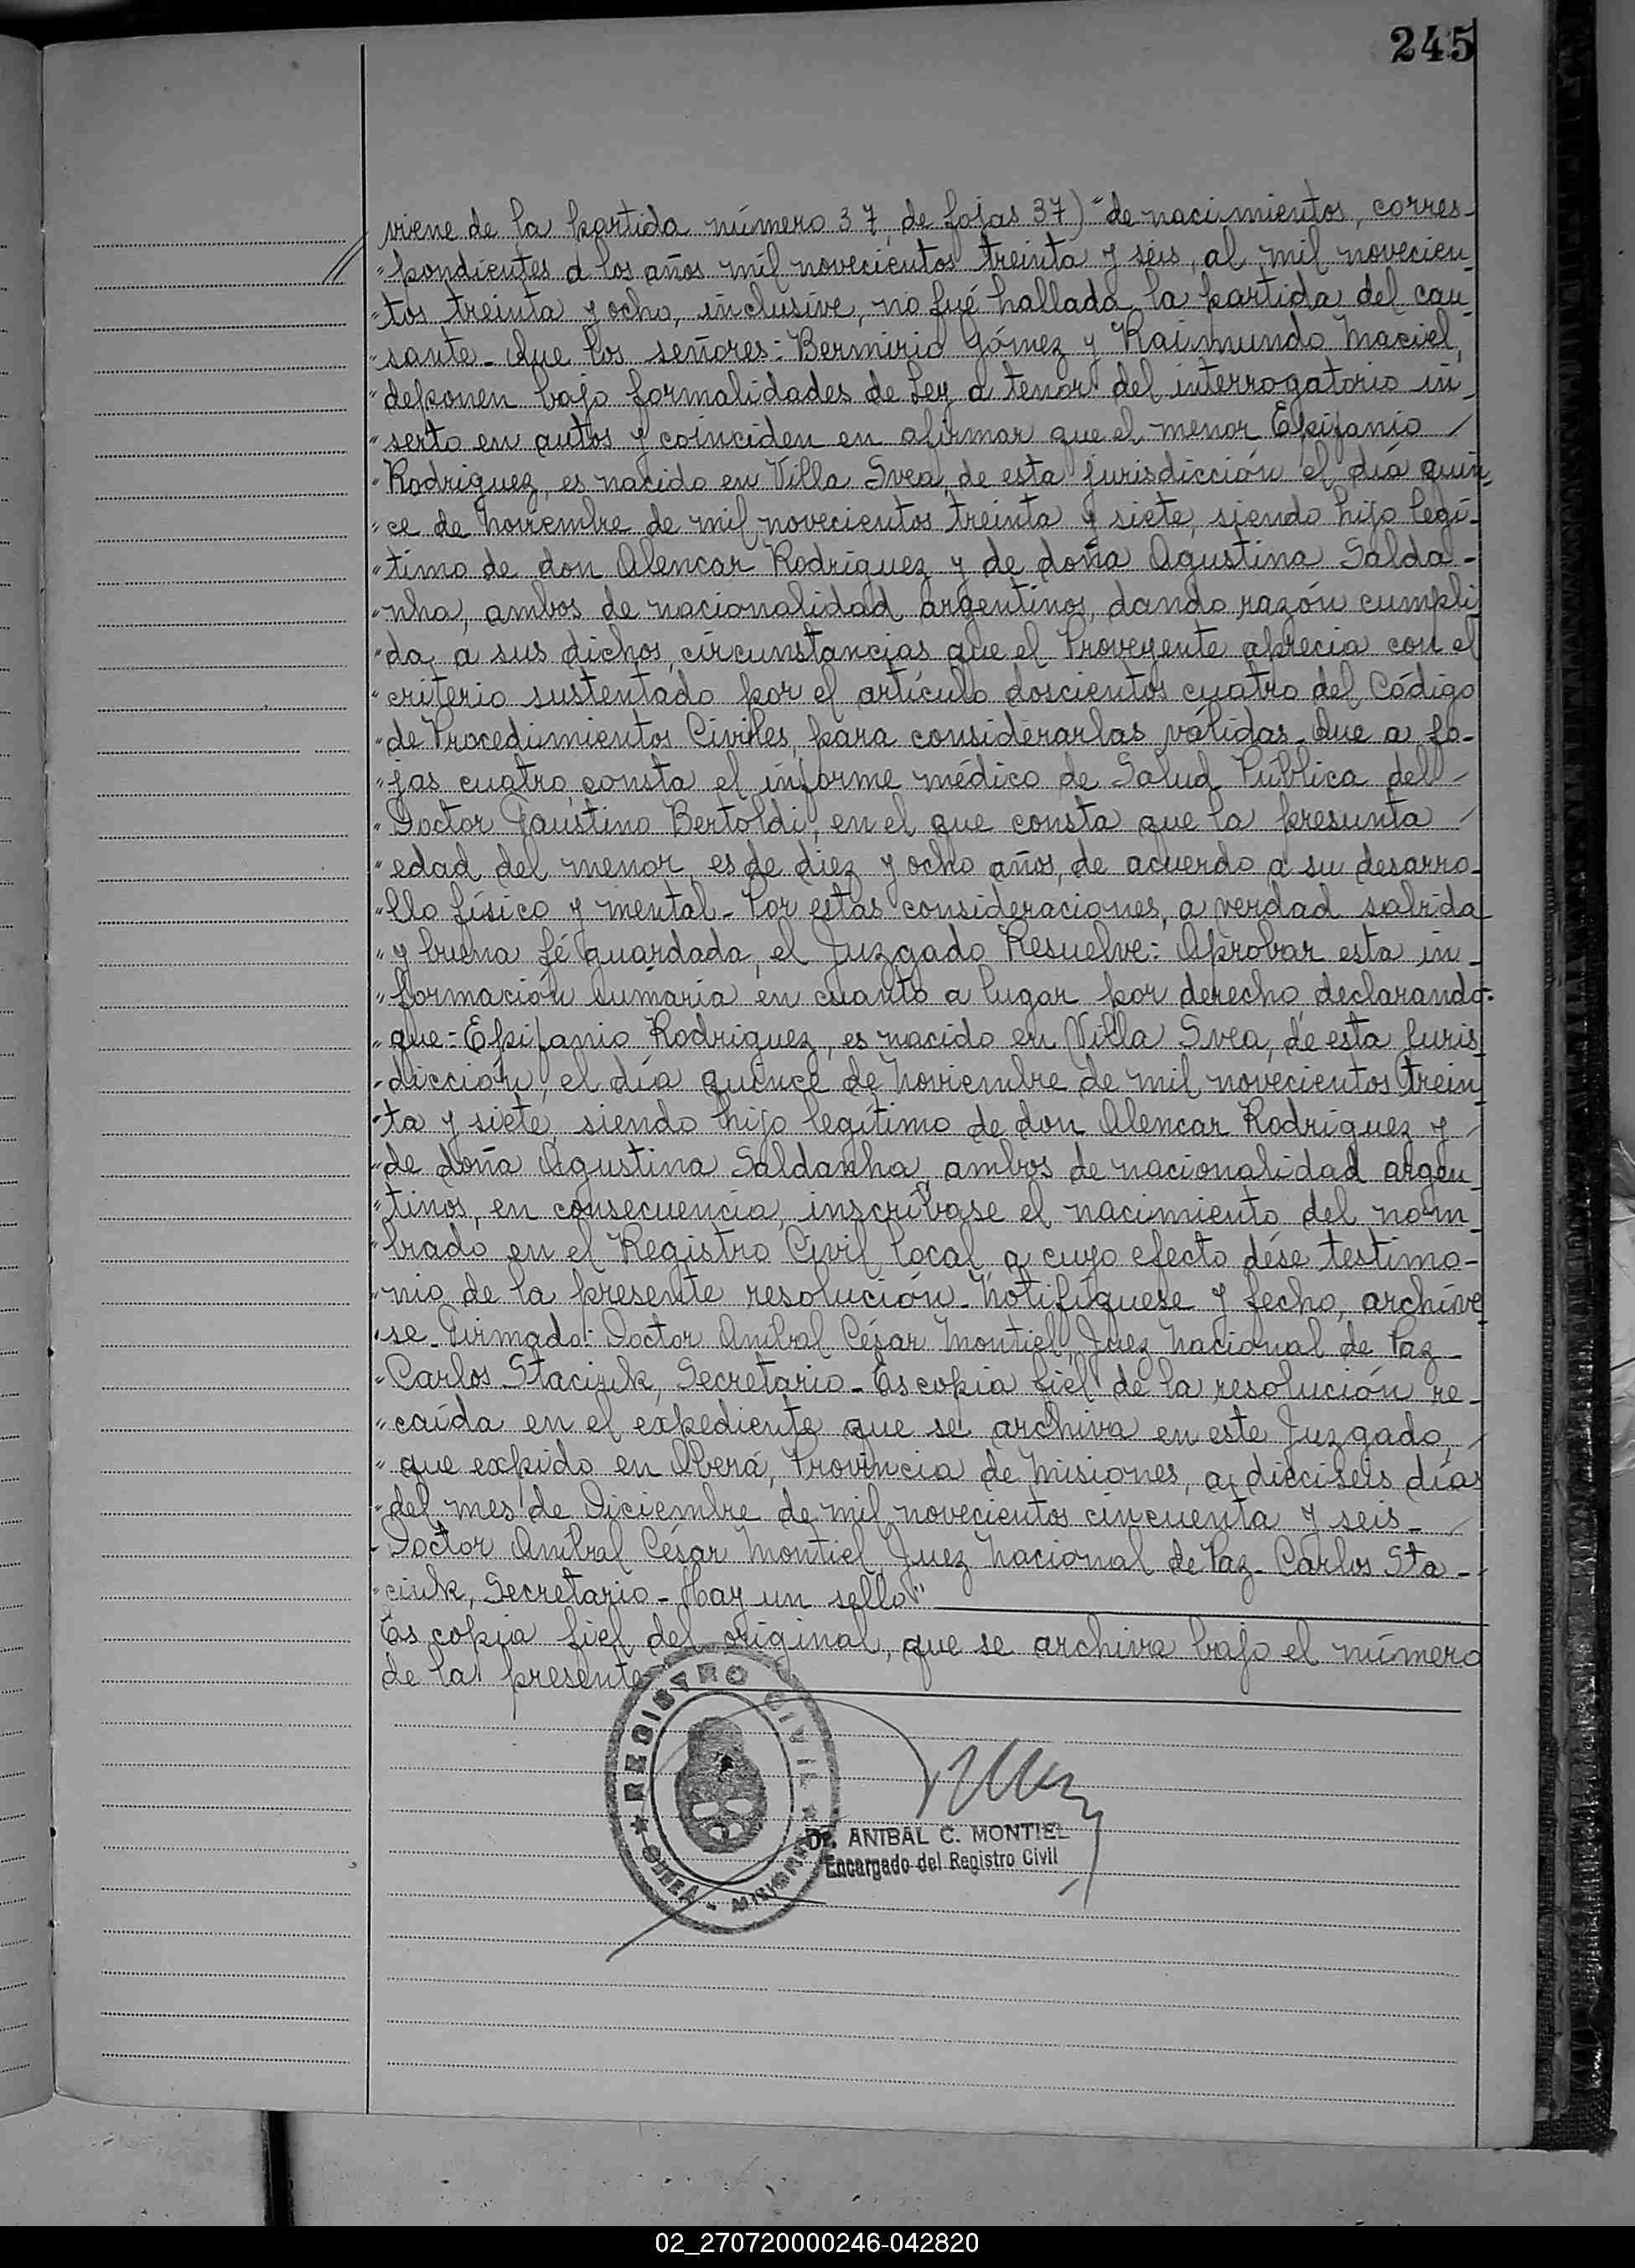 245
viene de la partida número 37, de fojas 37) "de nacimientos, corres-
"pondientes a los años mil novecientos treinta y seis, al mil novecien-
"tos treinta y ocho, inclusive, no fué hallada la partida del cau-
"sante.- Que los señores: Bermirio Gómez y Raimundo Maciel,
"deponen bajo formalidades de Ley a tenor del interrogatorio in-
"serto en autos y coinciden en afirmar que el menor Epifanio
"Rodriguez, es nacido en Villa Svea, de esta jurisdicción el día quin-
"ce de Noviembre de mil novecientos treinta y siete, siendo hijo legí-
"timo de don Alencar Rodriguez y de doña Agustina Salda-
"nha, ambos de nacionalidad argentinos, dando razón cumpli
"da a sus dichos, circunstancias que el Proveyente aprecia con el
"criterio sustentado por el artículo doscientos cuatro del Código
"de Procedimientos Civiles, para considerarlas válidas.- Que a fo-
"jas cuatro, consta el informe médico de Salud Pública del
"Doctor Faustino Bertoldi, en el que consta que la presunta
"edad del menor, es de diez y ocho años, de acuerdo a su desarro-
"llo físico y mental.- Por estas consideraciones, a verdad sabida
"y buena fé guardada, el Juzgado Resuelve: Aprobar esta in-
"formación sumaria en cuanto a lugar por derecho, declarando
"que:- Epifanio Rodriguez, es nacido en Villa Svea, de esta Juris
"dicción, el día quince de Noviembre de mil novecientos trein
"ta y siete, siendo hijo legítimo de don Alencar Rodriguez y
"de doña Agustina Saldanha, ambos de nacionalidad argen-
"tinos, en consecuencia, inscríbase el nacimiento del nom-
"brado en el Registro Civil local, a cuyo efecto dése testimo-
"nio de la presente resolución.- Notifíquese y fecho, archíve
"se.- Firmado: Doctor Anibal César Montiel, Juez Nacional de Paz.-
"Carlos Staciuk, Secretario.- Es copia fiel de la resolución re-
"caída en el expediente que se archiva en este Juzgado,
"que expido en Oberá, Provincia de Misiones, a dieciseis días
"del mes de Diciembre de mil novecientos cincuenta y seis.-
"Doctor Anibal César Montiel, Juez Nacional de Paz.- Carlos Sta-
"ciuk, Secretario.- Hay un sello"
Es copia fiel del original, que se archiva bajo el número
de la presente
REGISTRO CIVIL
OBERA - MISIONES
Dr. ANIBAL C. MONTIEL
Encargado del Registro Civil
02_270720000246-042820